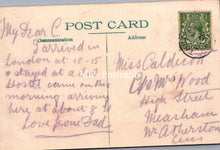 POST CARD
Communication
Address
My Dear C
I arrived in
London at 10-15
& stayed at a
Hostel came on this
morning arriving
here at about 8 30
Love from Dad
Miss Caldicott
c/o Mrs Wood
High Street
Measham
Nr Atherstone